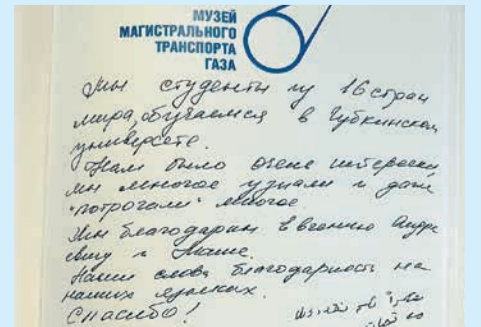 МУЗЕЙ
МАГИСТРАЛЬНОГО
ТРАНСПОРТА
ГАЗА
Мы студенты из 16 стран
мира, обучаемся в Губкинском
универсете.
Нам было очень интересно,
мы многое узнали и даже
"потрогали" многое.
Мы благодарим Евгению Андре
евну и Машу.
Наши слова благодарность на
наших языках.
СПАСИБО!